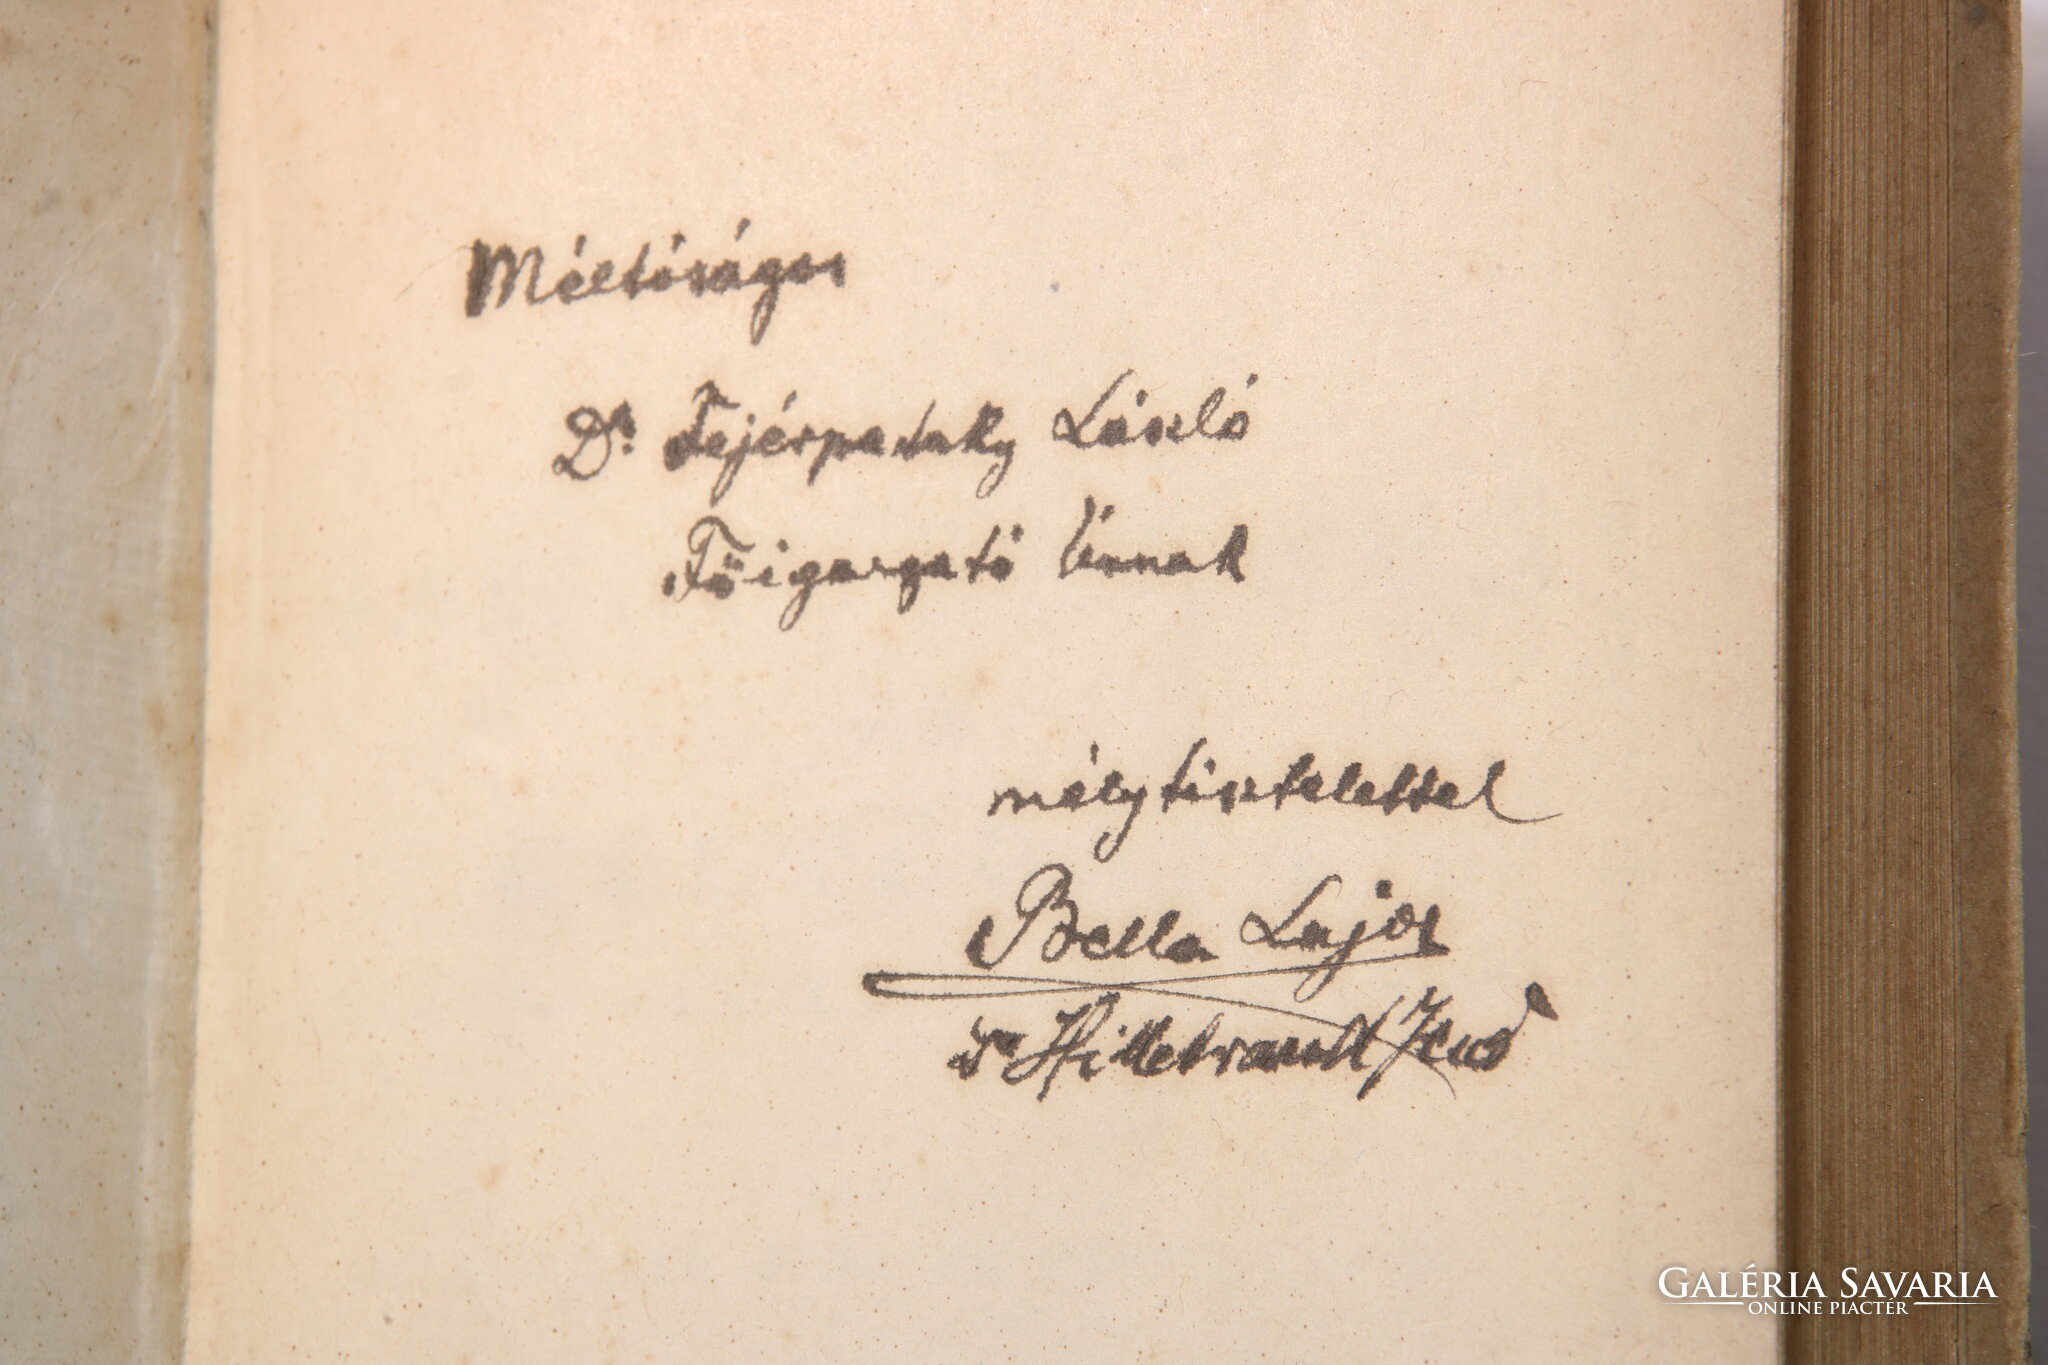 Méltóságos
Dr Fejérpataky László
Főigazgató Úrnak
mély tisztelettel
Bella Lajos
dr Hillebrandt Jenő
GALÉRIA SAVARIA
ONLINE PIACTÉR